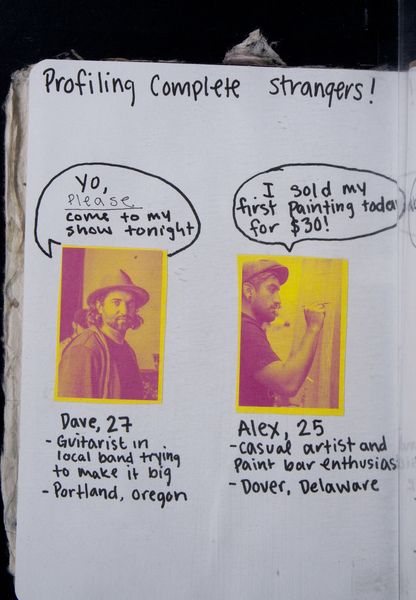 Profiling Complete strangers!
Yo,
Please
come to my
show tonight
I sold my
first Painting today
for $30!
Dave, 27
- Guitarist in
local band trying
to make it big
- Portland, Oregon
Alex, 25
- casual artist and
Paint bar enthusias
- Dover, Delaware